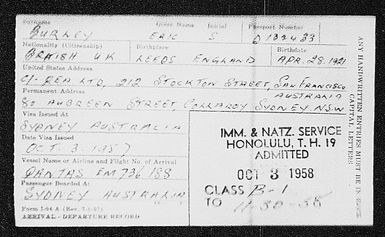 Surname Given Name Initial Passport Number
BURLEY ERIC S D 133433
Nationality (Citizenship) Birthplace Birthdate
BRITISH U.K LEEDS ENGLAND APR. 28. 1921
United States Address
C/- REA LTD, 212 STOCKTON STREET, SAN FRANCISCO
Permanent Address AUSTRALIA
80 STREET, COLLAROY SYDNEY N.S.W
Visa Issued at
SYDNEY AUSTRALIA
Date Visa Issued
OCT. 3 1957
Vessel Name or Airline and Flight No. of Arrival
QANTAS EM736 188
Passenger Boarded at
SYDNEY AUSTRALIA
Form I-94 A (Rev. 7-1-57)
ARRIVAL - DEPARTURE RECORD
IMM. & NATZ. SERVICE
HONOLULU, T. H. 19
ADMITTED
OCT 3 1958
CLASS B-1
TO 11-30-58
ANY HANDWRITTEN ENTRIES MUST BE IN
CAPITAL LETTERS